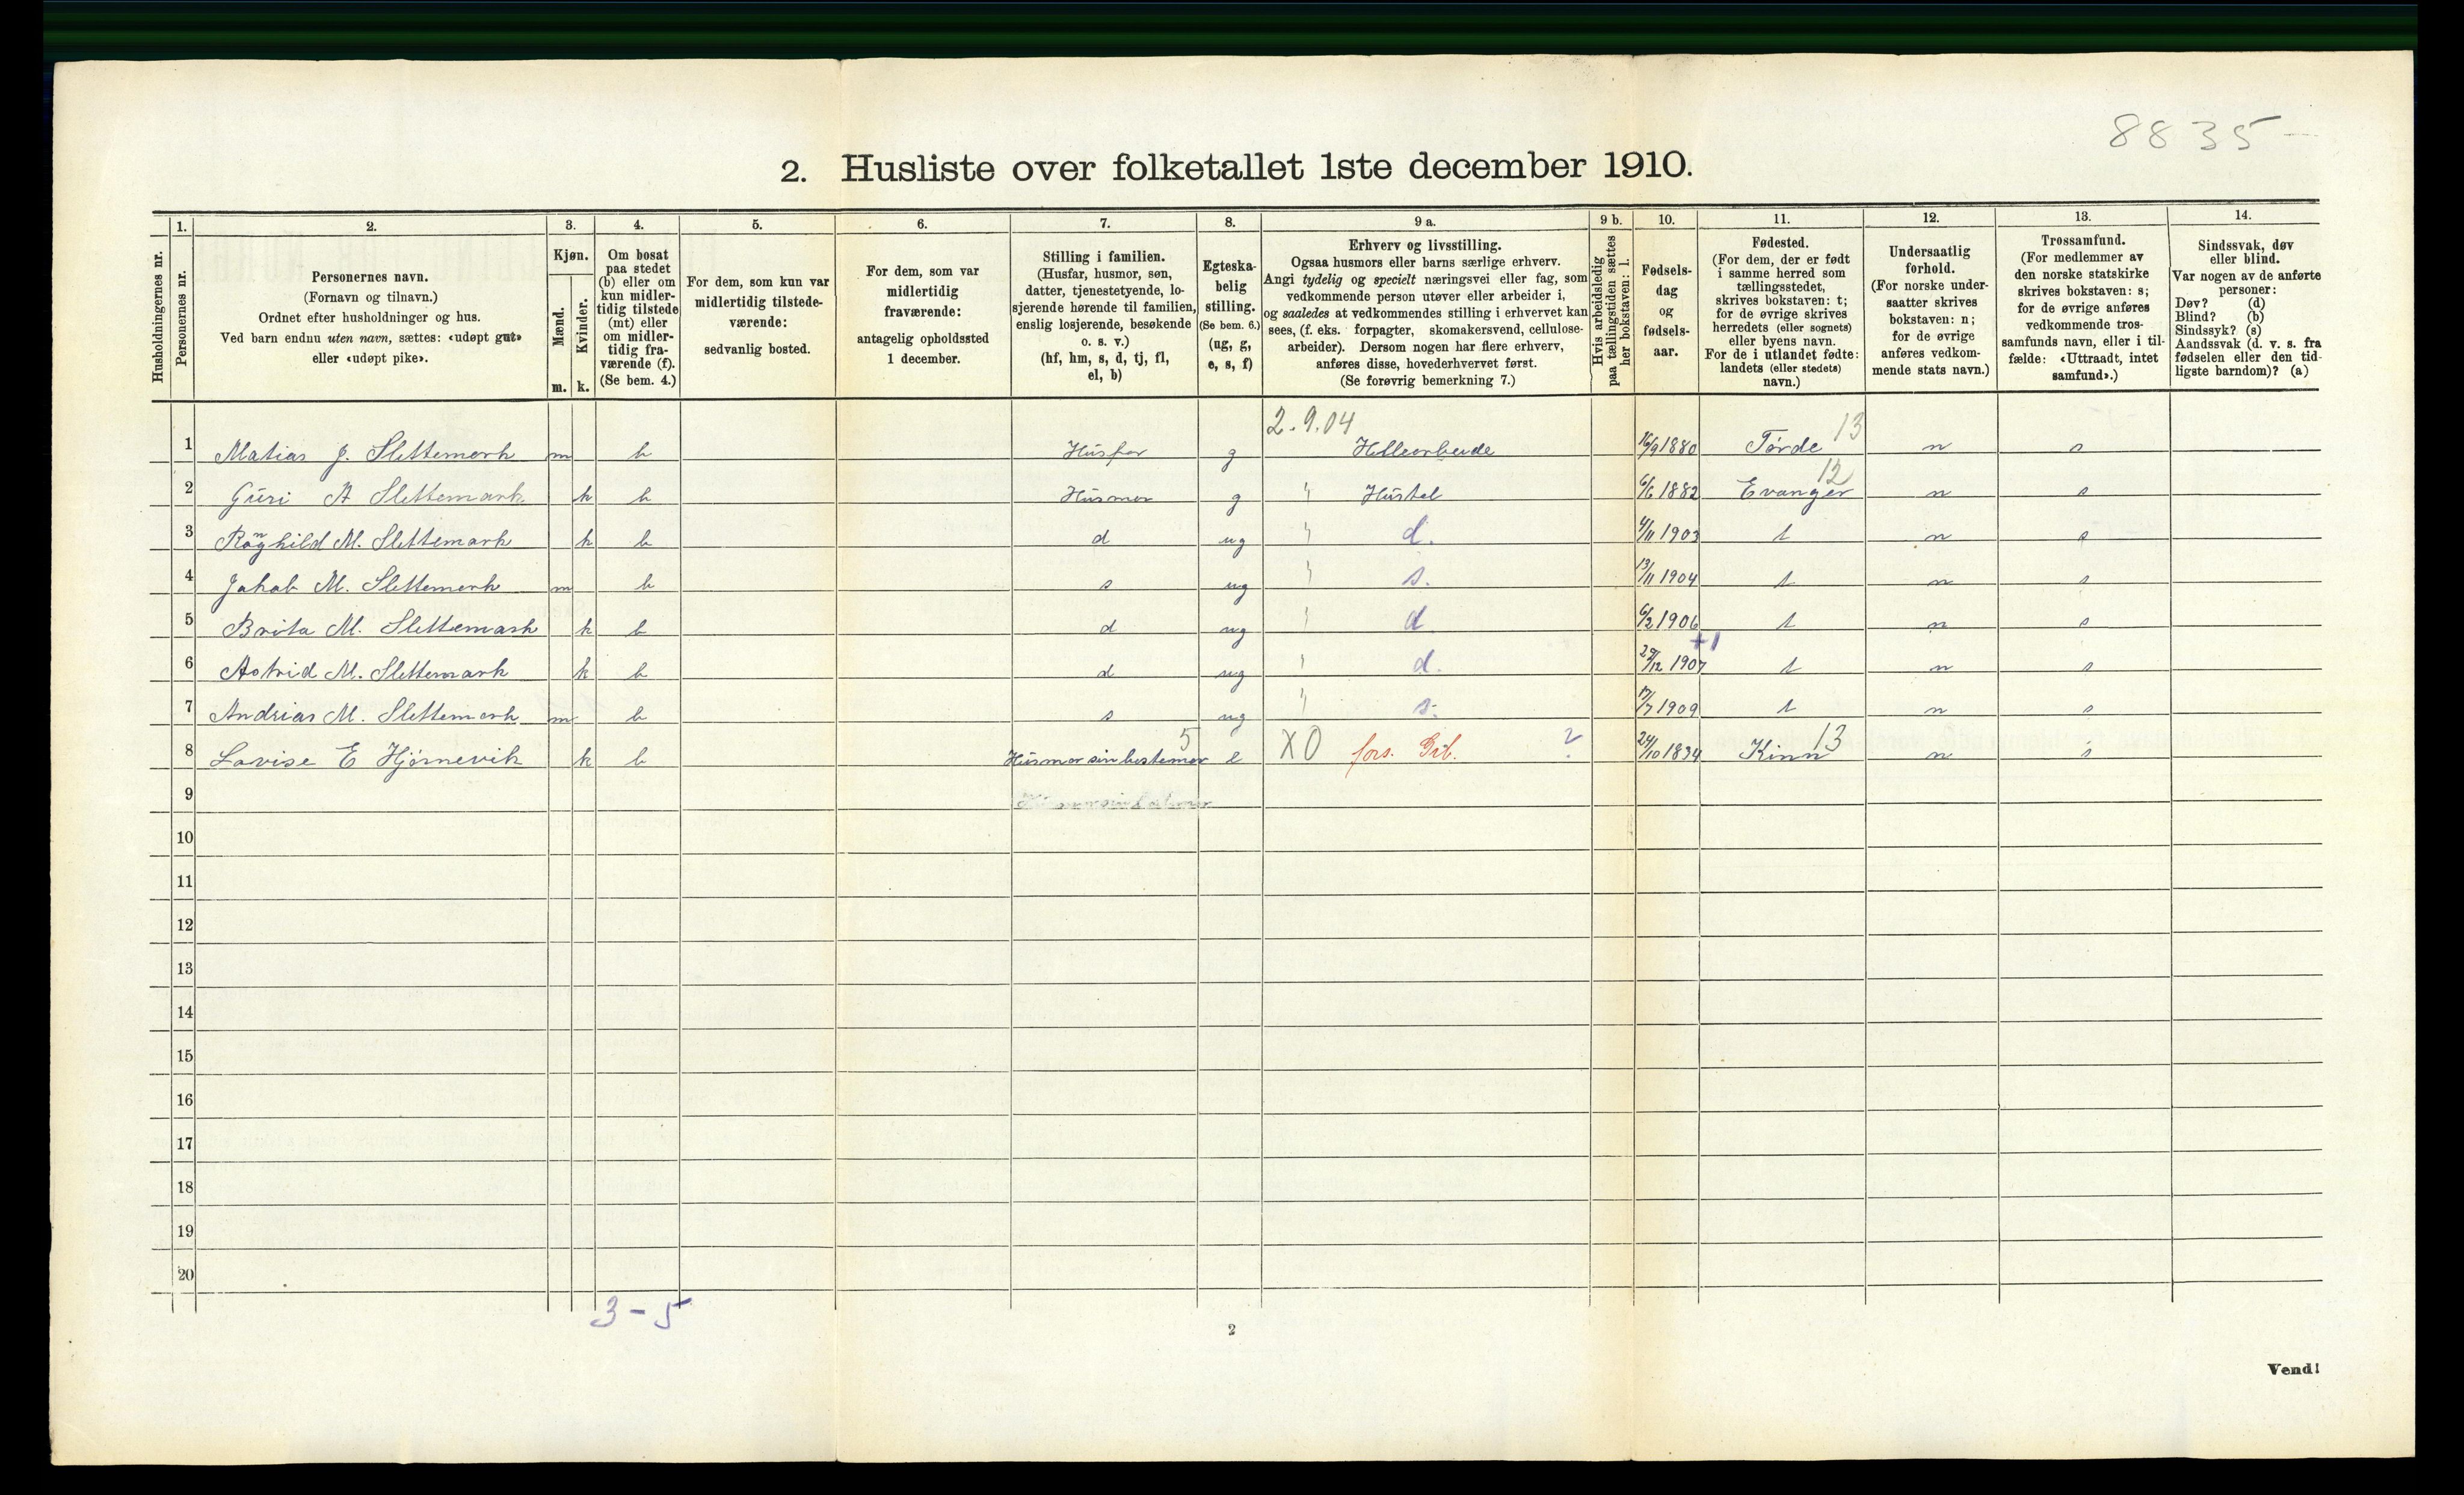 8835-
2. Husliste over folketallet 1ste december 1910.
Husholdningernes nr.
1. Personernes nr.
2. Personernes navn.
(Fornavn og tilnavn.)
Ordnet efter husholdninger og hus.
Ved barn endnu uten navn, sættes: «udøpt gut»
eller «udøpt pike».
3. Kjøn.
Mænd. m.
Kvinder. k.
4. Om bosat
paa stedet
(b) eller om
kun midler-
tidig tilstede
(mt) eller
om midler-
tidig fra-
værende (f).
(Se bem. 4.)
5. For dem, som kun var
midlertidig tilstede-
værende:
sedvanlig bosted.
6. For dem, som var
midlertidig
fraværende:
antagelig opholdssted
1 december.
7. Stilling i familien.
(Husfar, husmor, søn,
datter, tjenestetyende, lo-
sjerende hørende til familien,
enslig losjerende, besøkende
o. s. v.)
(hf, hm, s, d, tj, fl,
el, b)
8. Egteska-
belig
stilling.
(Se bem. 6.)
(ug, g,
e, s, f)
9 a. Erhverv og livsstilling.
Ogsaa husmors eller barns særlige erhverv.
Angi tydelig og specielt næringsvei eller fag, som
vedkommende person utøver eller arbeider i,
og saaledes at vedkommendes stilling i erhvervet kan
sees, (f. eks. forpagter, skomakersvend, cellulose-
arbeider). Dersom nogen har flere erhverv,
anføres disse, hovederhvervet først.
(Se forøvrig bemerkning 7.)
9 b. Hvis arbeidsledig
paa tællingstiden sættes
her bokstaven: l.
10. Fødsels-
dag
og
fødsels-
aar.
11. Fødested.
(For dem, der er født
i samme herred som
tællingsstedet,
skrives bokstaven: t;
for de øvrige skrives
herredets (eller sognets)
eller byens navn.
For de i utlandet fødte:
landets (eller stedets)
navn.)
12. Undersaatlig
forhold.
(For norske under-
saatter skrives
bokstaven: n;
for de øvrige
anføres vedkom-
mende stats navn.)
13. Trossamfund.
(For medlemmer av
den norske statskirke
skrives bokstaven: s;
for de øvrige anføres
vedkommende tros-
samfunds navn, eller i til-
fælde: «Uttraadt, intet
samfund».)
14. Sindssvak, døv
eller blind.
Var nogen av de anførte
personer:
Døv? (d)
Blind? (b)
Sindssyk? (s)
Aandssvak (d. v. s. fra
fødselen eller den tid-
ligste barndom)? (a)
2.9.04 13
1 Matias J. Slettemark m b Husfar g Hellearbeide 16/9 1880 Førde n s
12
2 Guri A Slettemark k b Husmor g " Hustel 6/6 1882 Evanger n s
3 Ranghild M. Slettemark k b d ug " d. 4/11 1903 t n s
4 Jakob M. Slettemark m b s ug " s. 13/11 1904 t n s
5 Brita M. Slettemark k b d ug " d 6/2 1906 t n s
+1
6 Astrid M. Slettemark k b d ug " d. 29/12 1907 t n s
7 Andrias M. Slettemark m b s ug " s. 17/7 1909 t n s
5 ? 13
8 Lovise E Hjørnevik k b Husmor sin bestemor e X0 fors. Grb. 24/10 1834 Kinn n s
9
10
11
12
13
14
15
16
17
18
19
20
3-5
2
Vend!